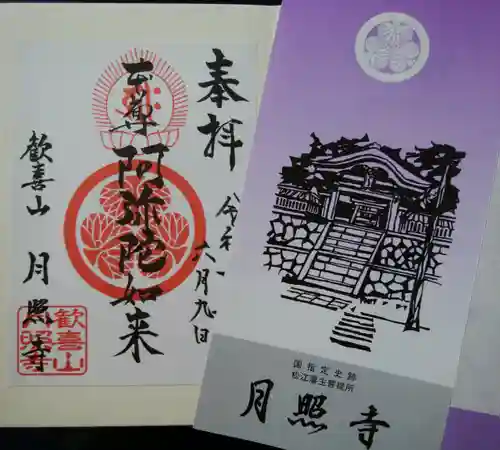 奉拝
令和一
六月九日
本尊
阿弥陀如来
歓喜山
月照寺
歓喜山
月照寺
国指定史跡
松江藩主菩提所
月照寺